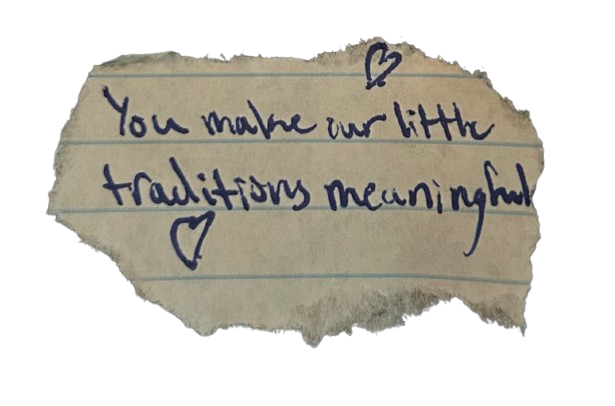 You make our little
traditions meaningful